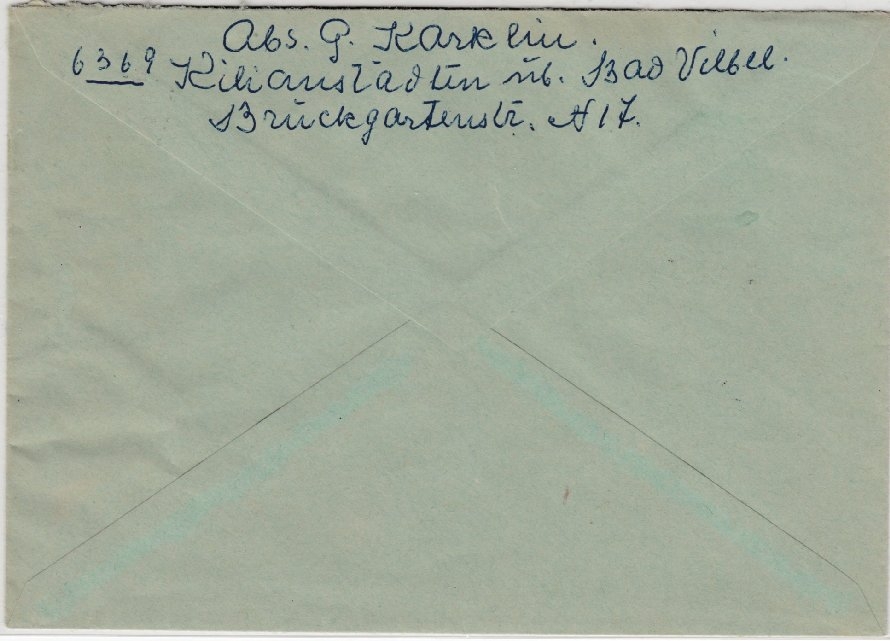 Abs. G. Karklin.
6369 Kilianstädten üb. Bad Vilbel.
Brückgartenstr. N 17.